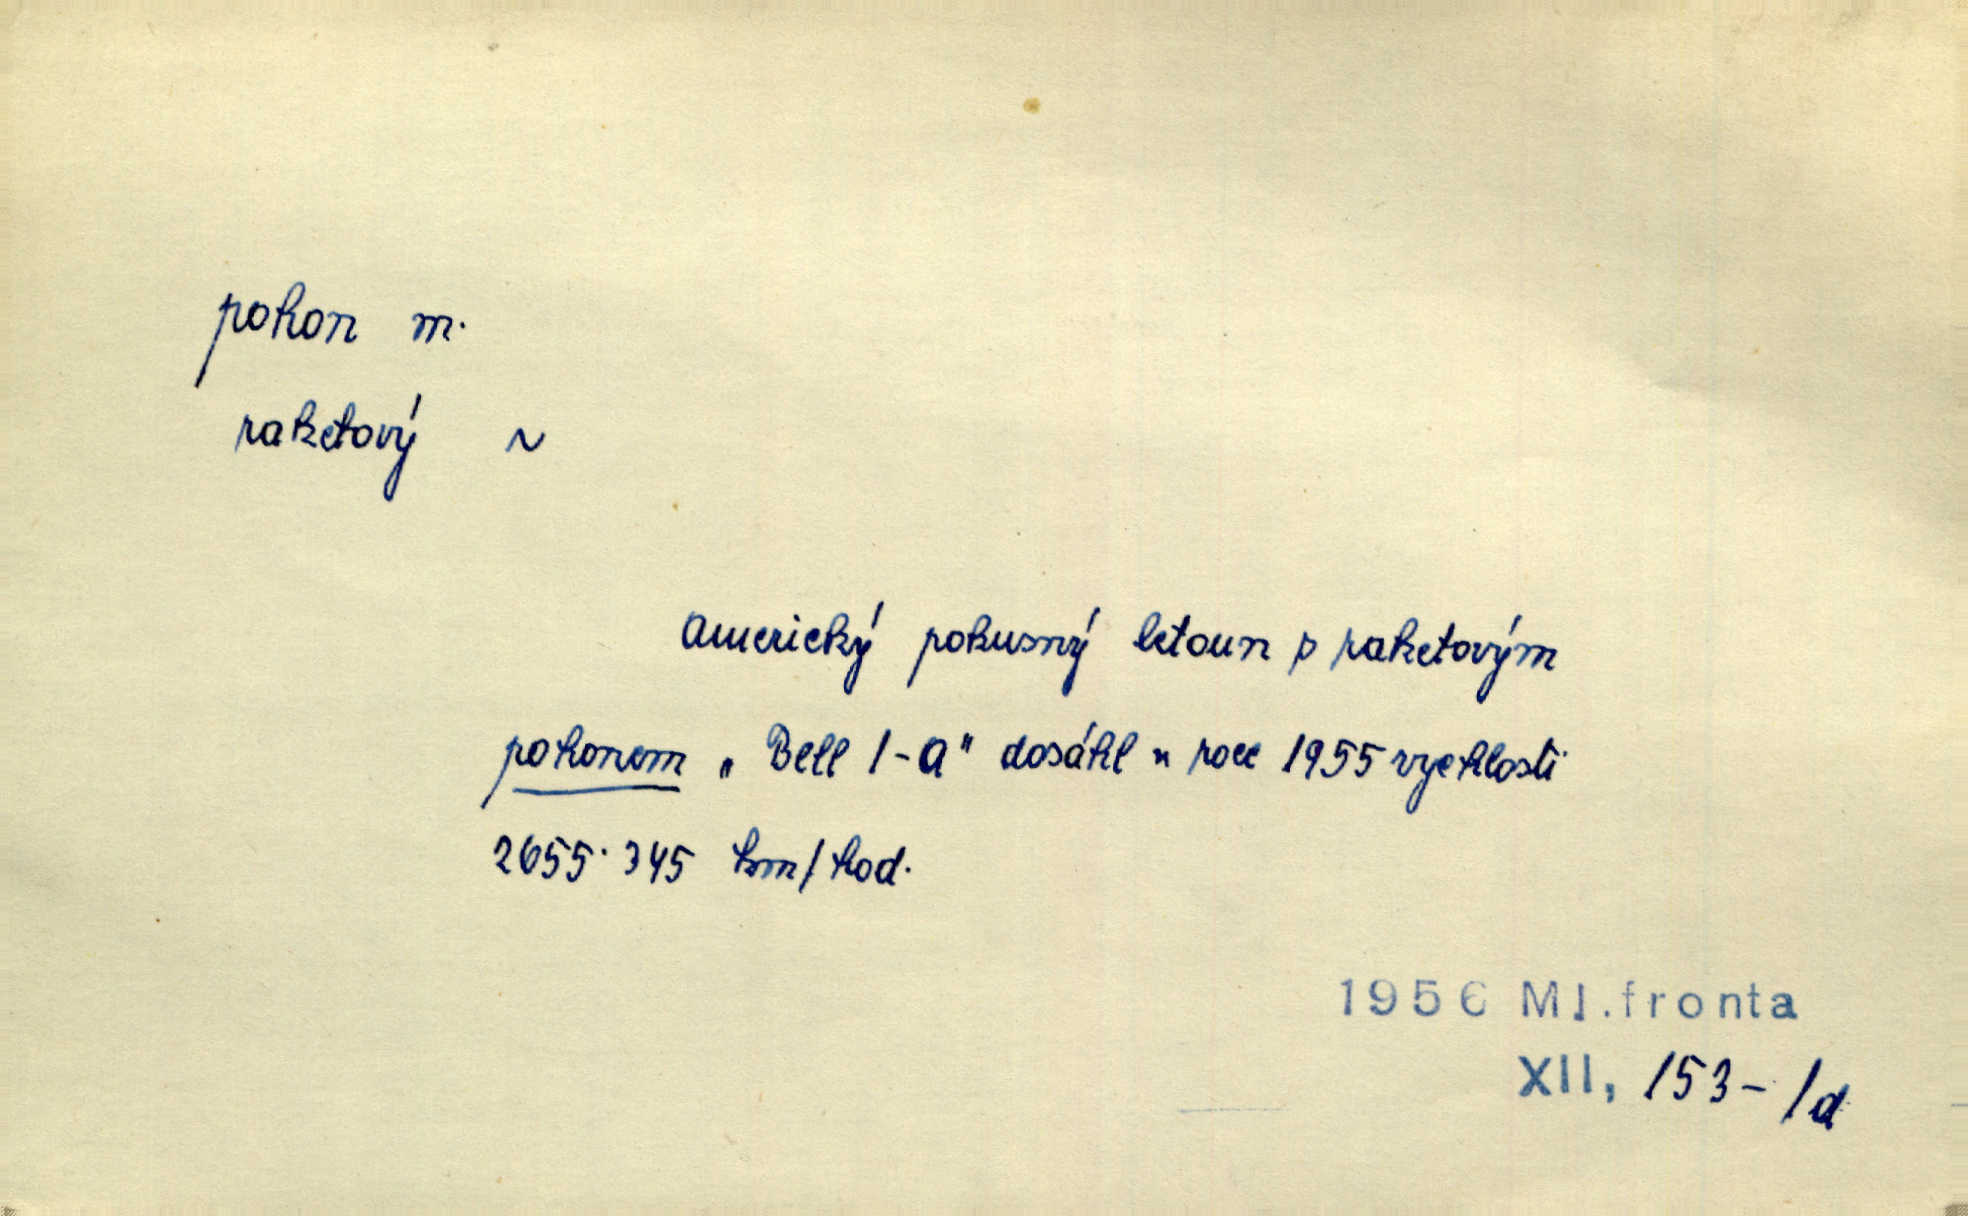 pohon m.
raketový ~
Americký pokusný letoun s raketovým
pohonem „Bell 1-A" dosáhl v roce 1955 rychlosti
2655.345 km/hod.
1956 Ml.fronta
XII, 153-/d